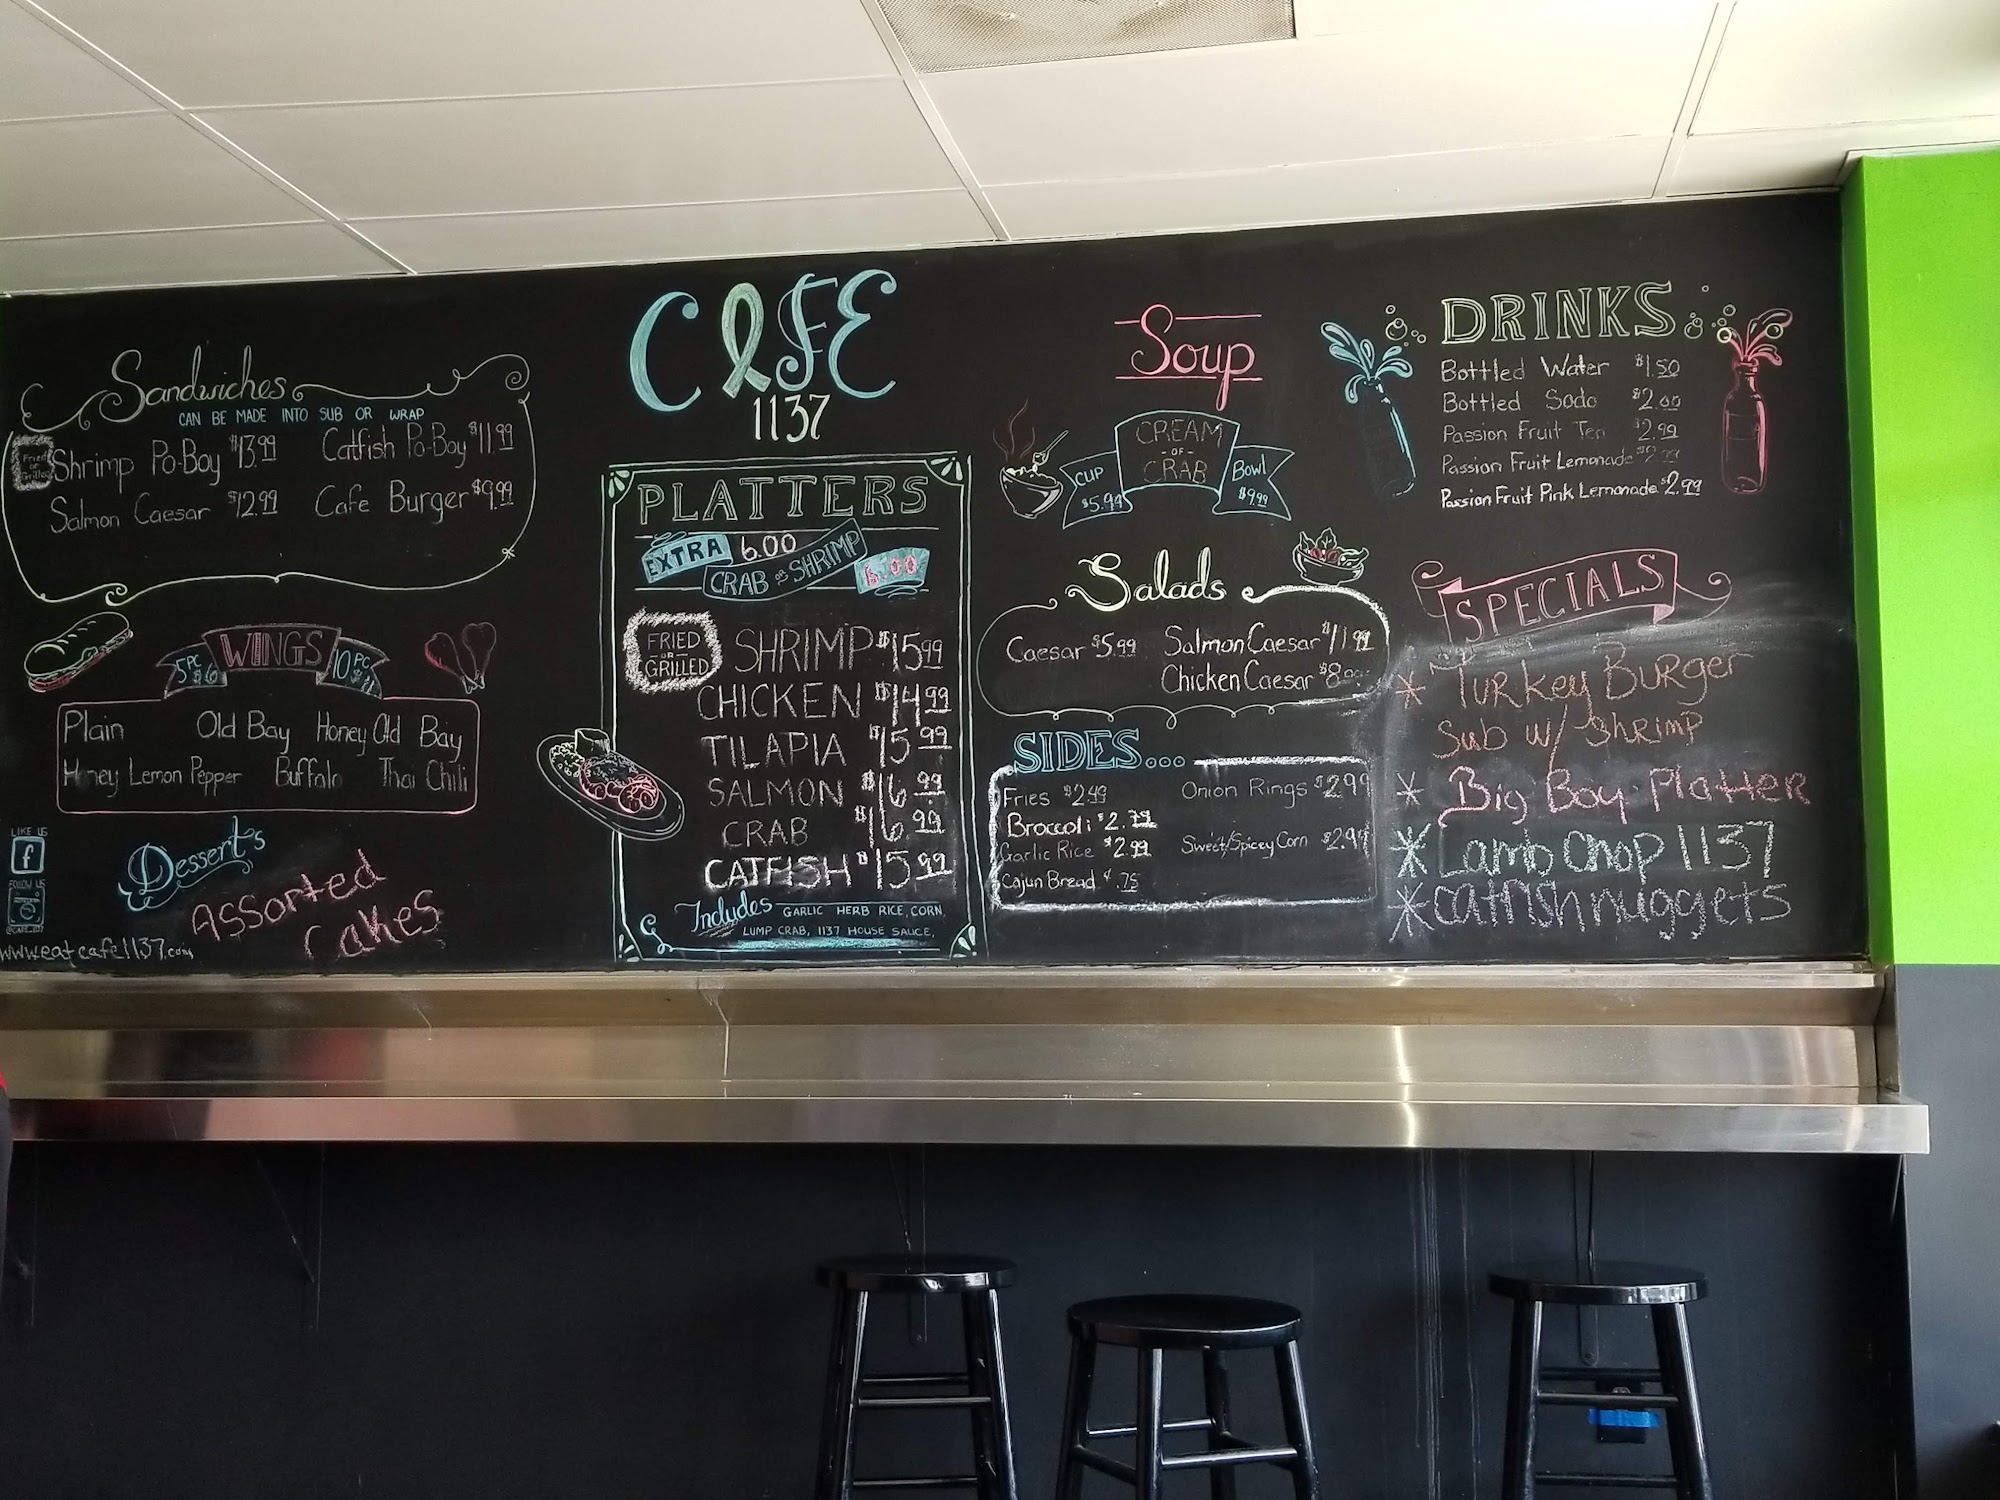 CAFE
1137
Sandwiches
CAN BE MADE INTO SUB OR WRAP
Fried
or
Grilled
Shrimp Po-Boy $13.99
Catfish Po-Boy $11.99
Salmon Caesar $12.99
Cafe Burger $9.99
WINGS
5PC $6
10PC
Plain Old Bay Honey Old Bay
Honey Lemon Pepper Buffalo Thai Chili
LIKE US
f
FOLLOW US
Dessert's
Assorted
Cakes
www.eatcafe1137.com
PLATTERS
EXTRA 6.00
CRAB OR SHRIMP 6.00
FRIED
OR
GRILLED
SHRIMP $15.99
CHICKEN $14.99
TILAPIA $15.99
SALMON $16.99
CRAB $16.99
CATFISH $15.99
Includes GARLIC HERB RICE, CORN,
LUMP CRAB, 1137 HOUSE SAUCE,
Soup
CREAM
OF
CRAB
CUP
$5.99
Bowl
$9.99
Salads
Caesar $5.99
Salmon Caesar $11.99
Chicken Caesar
SIDES...
Fries $2.99
Broccoli $2.79
Garlic Rice $2.99
Cajun Bread $.75
Onion Rings $2.99
Sweet/Spicey Corn $2.99
DRINKS
Bottled Water $1.50
Bottled Soda $2.00
Passion Fruit Tea $2.99
Passion Fruit Lemonade $2.99
Passion Fruit Pink Lemonade $2.99
SPECIALS
* Turkey Burger
Sub w/ Shrimp
* Big Boy Platter
* Lamb Chop 1137
* catfish nuggets